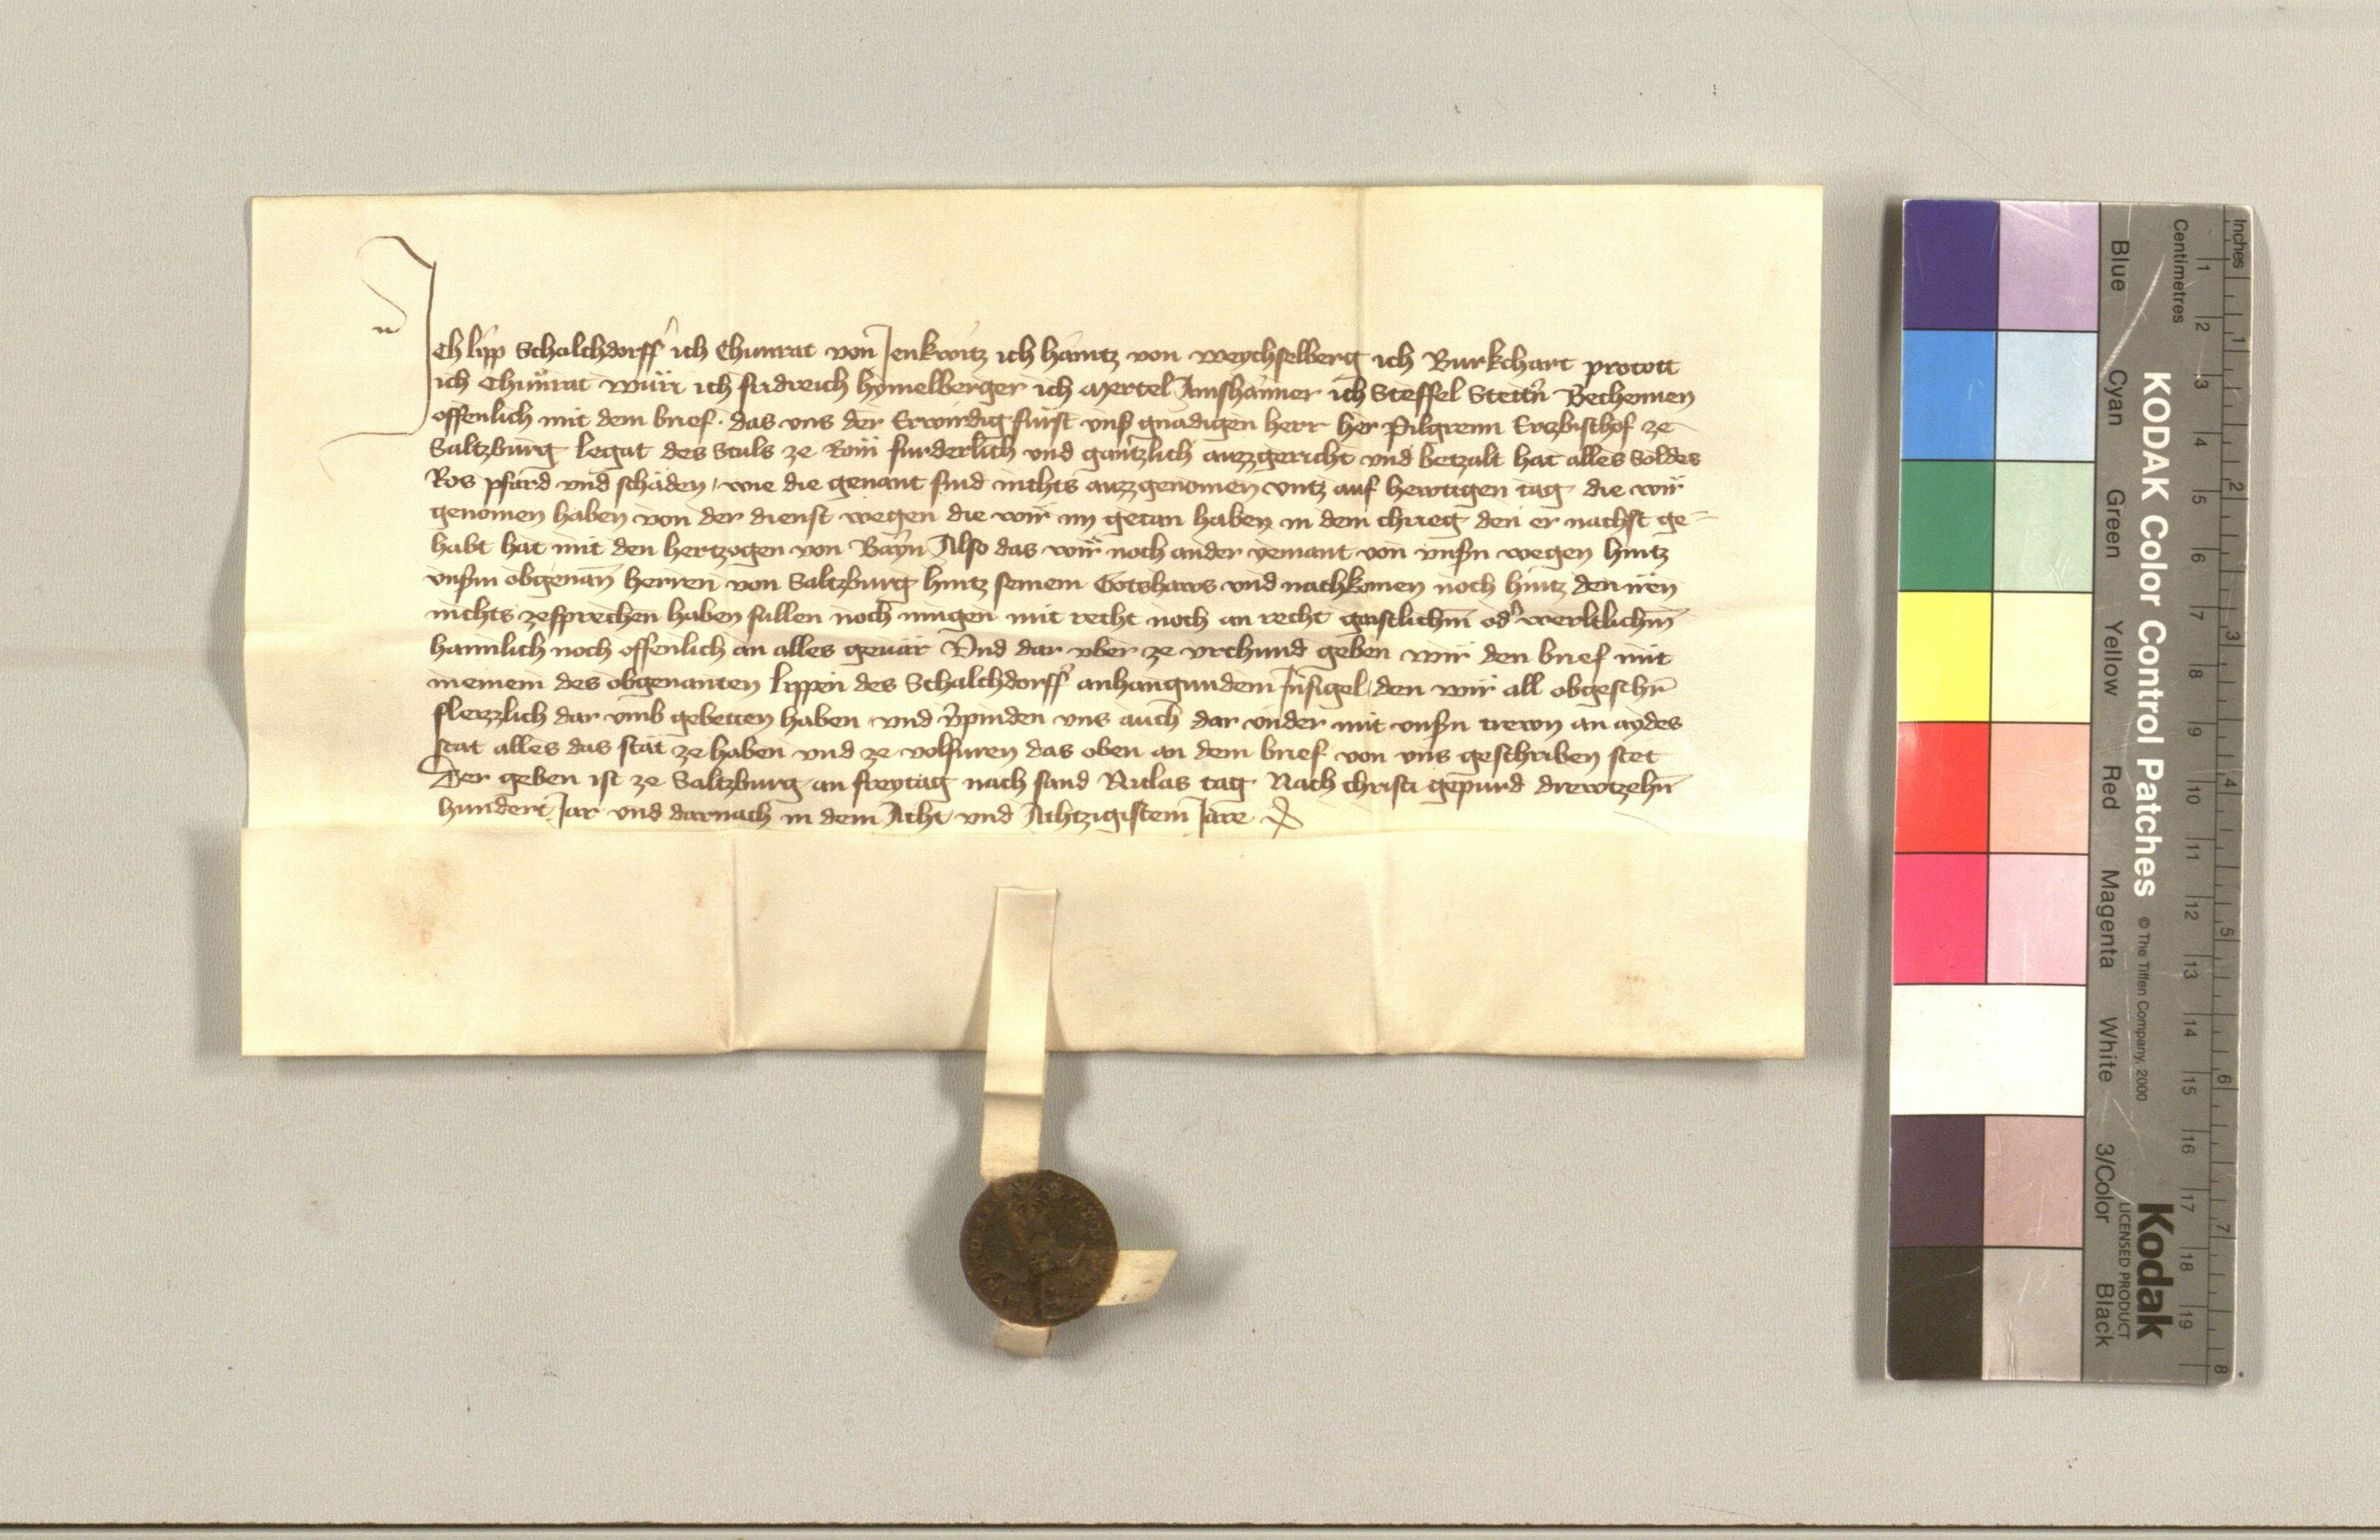 Ich lipp Schalchdorff' ich Chunrat von Jenkwitz ich hantz von weychselberg ich Burkchart protott
ich Chunrat würr ich fridreich hymelberger ich Mertel Amshaimer ich Steffel Stettn' Bechennen
offenlich mit dem brief. das vns der Erwirdig fürst vns' gnädigen herr her Pilgreim Ertzbischof ze
Saltzburg legat des Stuls ze Rom furderlich vnd gäntzlich auzzgericht vnd betzalt hat alles Soldes
Ros pfärd vnd schäden, wie die genant sind nichts auzzgenomen vntz auf hewtigen tag die wir
genomen haben von der dienst wegen die wir im getan haben in dem chrieg den er nachst ge-
habt hat mit den hertzogen von Bayrn Also das wir noch ander yemant von vnsn wegen hintz
vnsm obgenan̄ herren von Saltzburg hintz seinem Gotshaws vnd nachkomen noch hintz den iren
nichts zesprechen haben sullen noch mugen mit recht noch an recht gaistlichm̄ od' werltlichm̄
haimlich noch offenlich an alles geuär Vnd dar vber ze vrchund geben wir den brief mit
meinem des obgenanten lippen des Schalchdorff' anhangundem Insigel, den wir all obgeschr̄
fleizzlich dar vmb gebetten haben vnd v'pinden vns auch dar vnder mit vnsn trewn an aydes
stat alles das stät ze haben vnd ze volfuren das oben an dem brief von vns geschriben stet
Der geben ist ze Saltzburg an freytag nach sand Niclas tag Nach christi gepurd drewtzehn̄
hundert Jar vnd darnach in dem Acht vnd Achtzigistem Jare
KODAK Color Control Patches © The Tiffen Company, 2000
Kodak
LICENSED PRODUCT
Blue Cyan Green Yellow Red Magenta White 3/Color Black
Inches 1 2 3 4 5 6 7 8
Centimetres 1 2 3 4 5 6 7 8 9 10 11 12 13 14 15 16 17 18 19